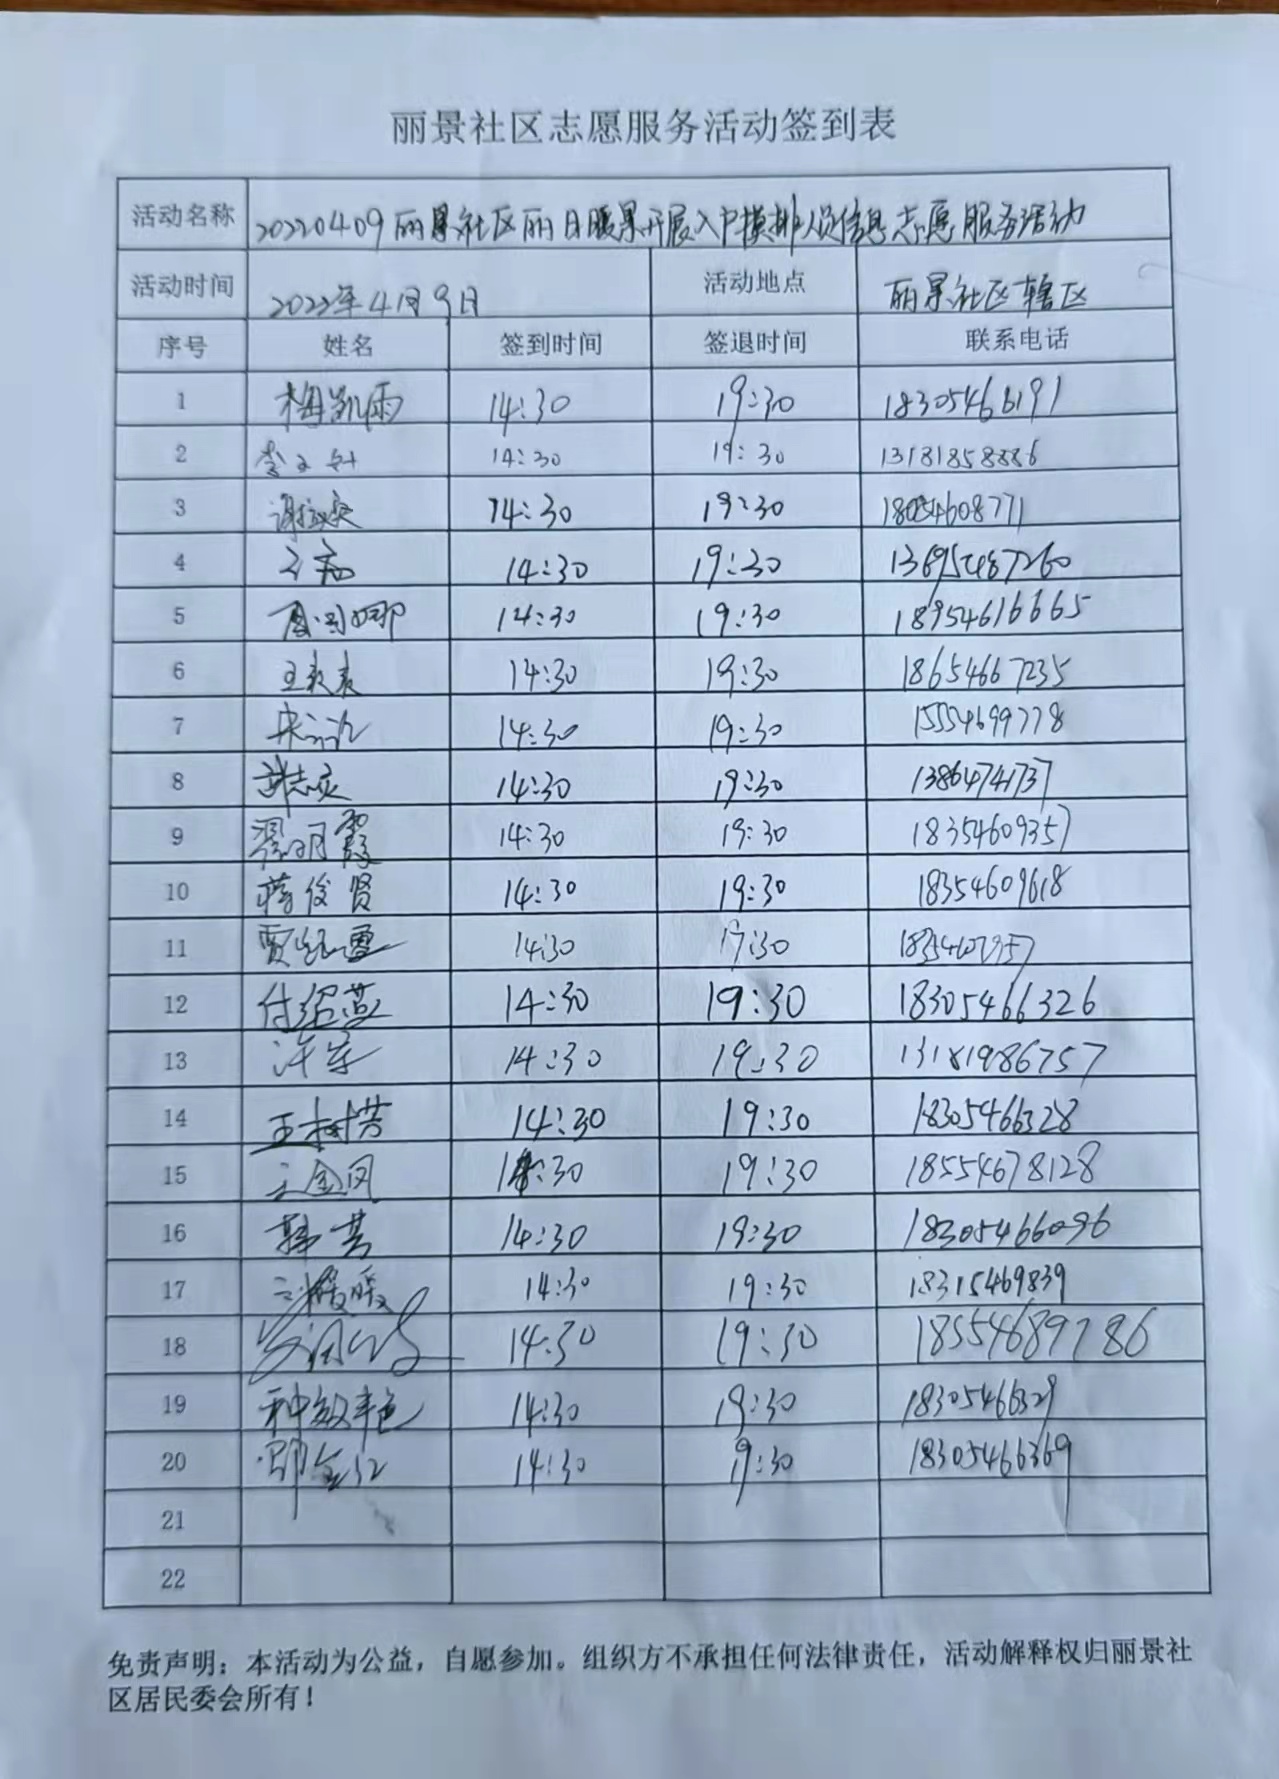 丽景社区志愿服务活动签到表
活动名称 20220409丽景社区丽日暖景开展入户摸排人员信息志愿服务活动
活动时间 2022年4月9日 活动地点 丽景社区辖区
序号 姓名 签到时间 签退时间 联系电话
1 梅凯雨 14:30 19:30 18305466191
2 14:30 19:30 13181858886
3 14:30 19:30 18054608771
4 14:30 19:30 13695487260
5 14:30 19:30 18954616665
6 14:30 19:30 18654667235
7 14:30 19:30 15554699778
8 14:30 19:30 13864741737
9 翟明霞 14:30 19:30 18354609357
10 蒋俊贤 14:30 19:30 18354609618
11 14:30 19:30
12 付绍燕 14:30 19:30 18305466326
13 许军 14:30 19:30 13181986757
14 王树芳 14:30 19:30 18305466328
15 王金凤 14:30 19:30 18554678128
16 韩芳 14:30 19:30 18305466096
17 14:30 19:30 18315469839
18 14:30 19:30 18554689786
19 14:30 19:30 18305466329
20 14:30 19:30 18305466369
21
22
免责声明：本活动为公益，自愿参加。组织方不承担任何法律责任，活动解释权归丽景社
区居民委会所有！